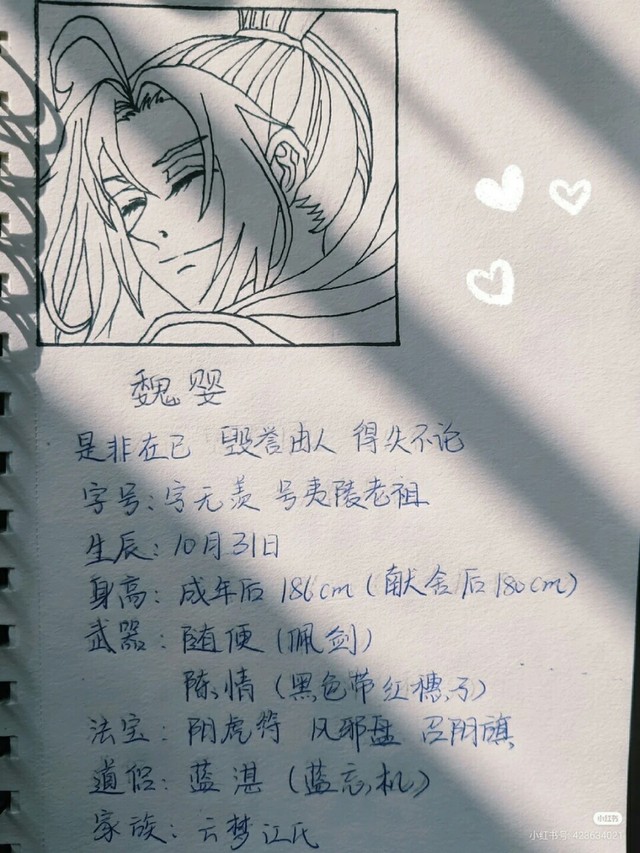 魏婴
是非在己 毁誉由人 得失不论
字号：字无羡 号夷陵老祖
生辰：10月31日
身高：成年后 186cm（献舍后180cm）
武器：随便（佩剑）
陈情（黑色带红穗子）
法宝：阴虎符 风邪盘 召阴旗
道侣：蓝湛（蓝忘机）
家族：云梦江氏
小红书
小红书号:428634021